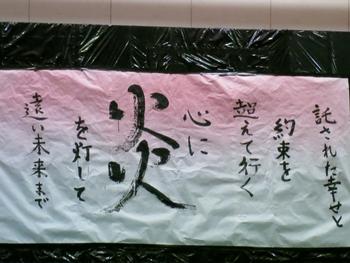 託された幸せと
約束を
超えて行く
心に
炎
を灯して
遠い未来まで